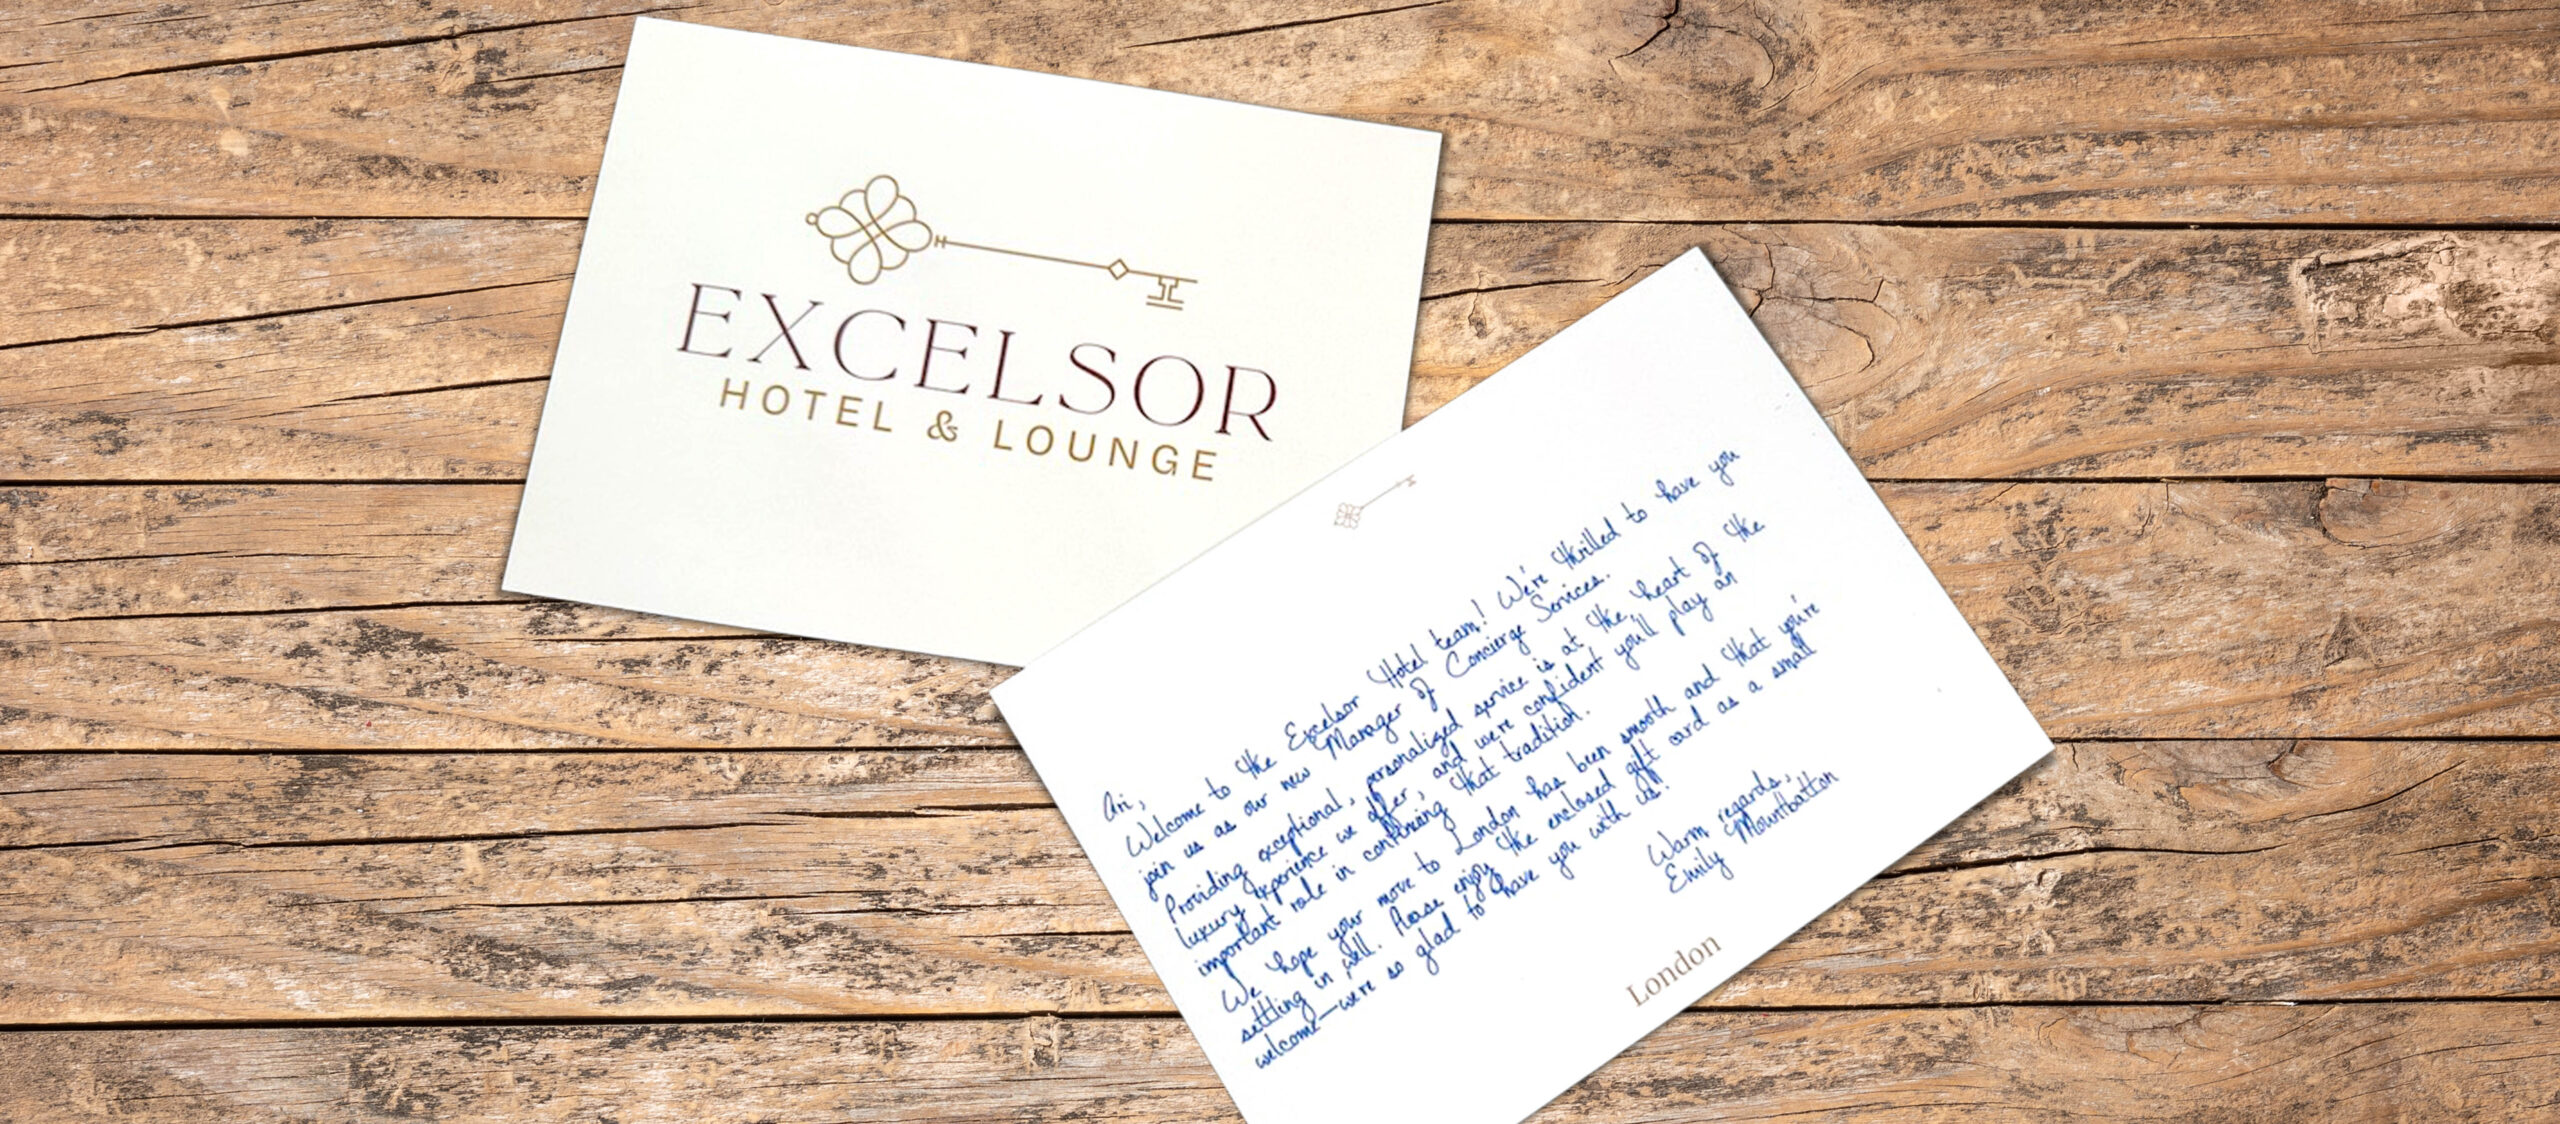 EXCELSOR
HOTEL & LOUNGE
Ari,
Welcome to the Excelsor Hotel team! We're thrilled to have you
join us as our new Manager of Concierge Services.
Providing exceptional, personalized service is at the heart of the
luxury experience we offer, and we're confident you'll play an
important role in continuing that tradition.
We hope your move to London has been smooth and that you're
settling in well. Please enjoy the enclosed gift card as a small
welcome—we're so glad to have you with us!
Warm regards,
Emily Mountbatton
London